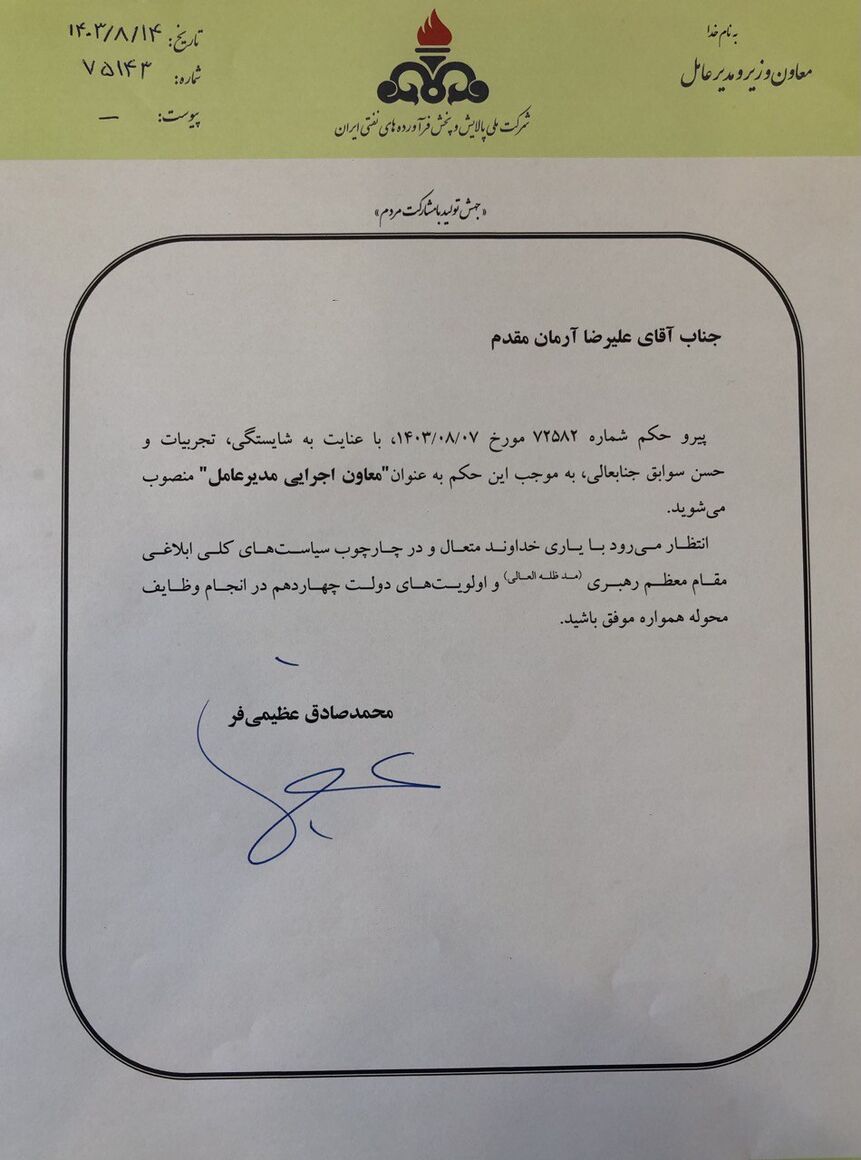 به نام خدا
معاون وزیر و مدیر عامل
شرکت ملی پالایش و پخش فرآورده های نفتی ایران
تاریخ: ۱۴۰۳/۸/۱۴
شماره: ۷۵۱۴۳
پیوست: —
«جهش تولید با مشارکت مردم»
جناب آقای علیرضا آرمان مقدم
پیرو حکم شماره ۷۲۵۸۲ مورخ ۱۴۰۳/۰۸/۰۷، با عنایت به شایستگی، تجربیات و
حسن سوابق جنابعالی، به موجب این حکم به عنوان"معاون اجرایی مدیرعامل" منصوب
می‌شوید.
انتظار می‌رود با یاری خداوند متعال و در چارچوب سیاست‌های کلی ابلاغی
مقام معظم رهبری (مد ظله العالی) و اولویت‌های دولت چهاردهم در انجام وظایف
محوله همواره موفق باشید.
محمدصادق عظیمی‌فر